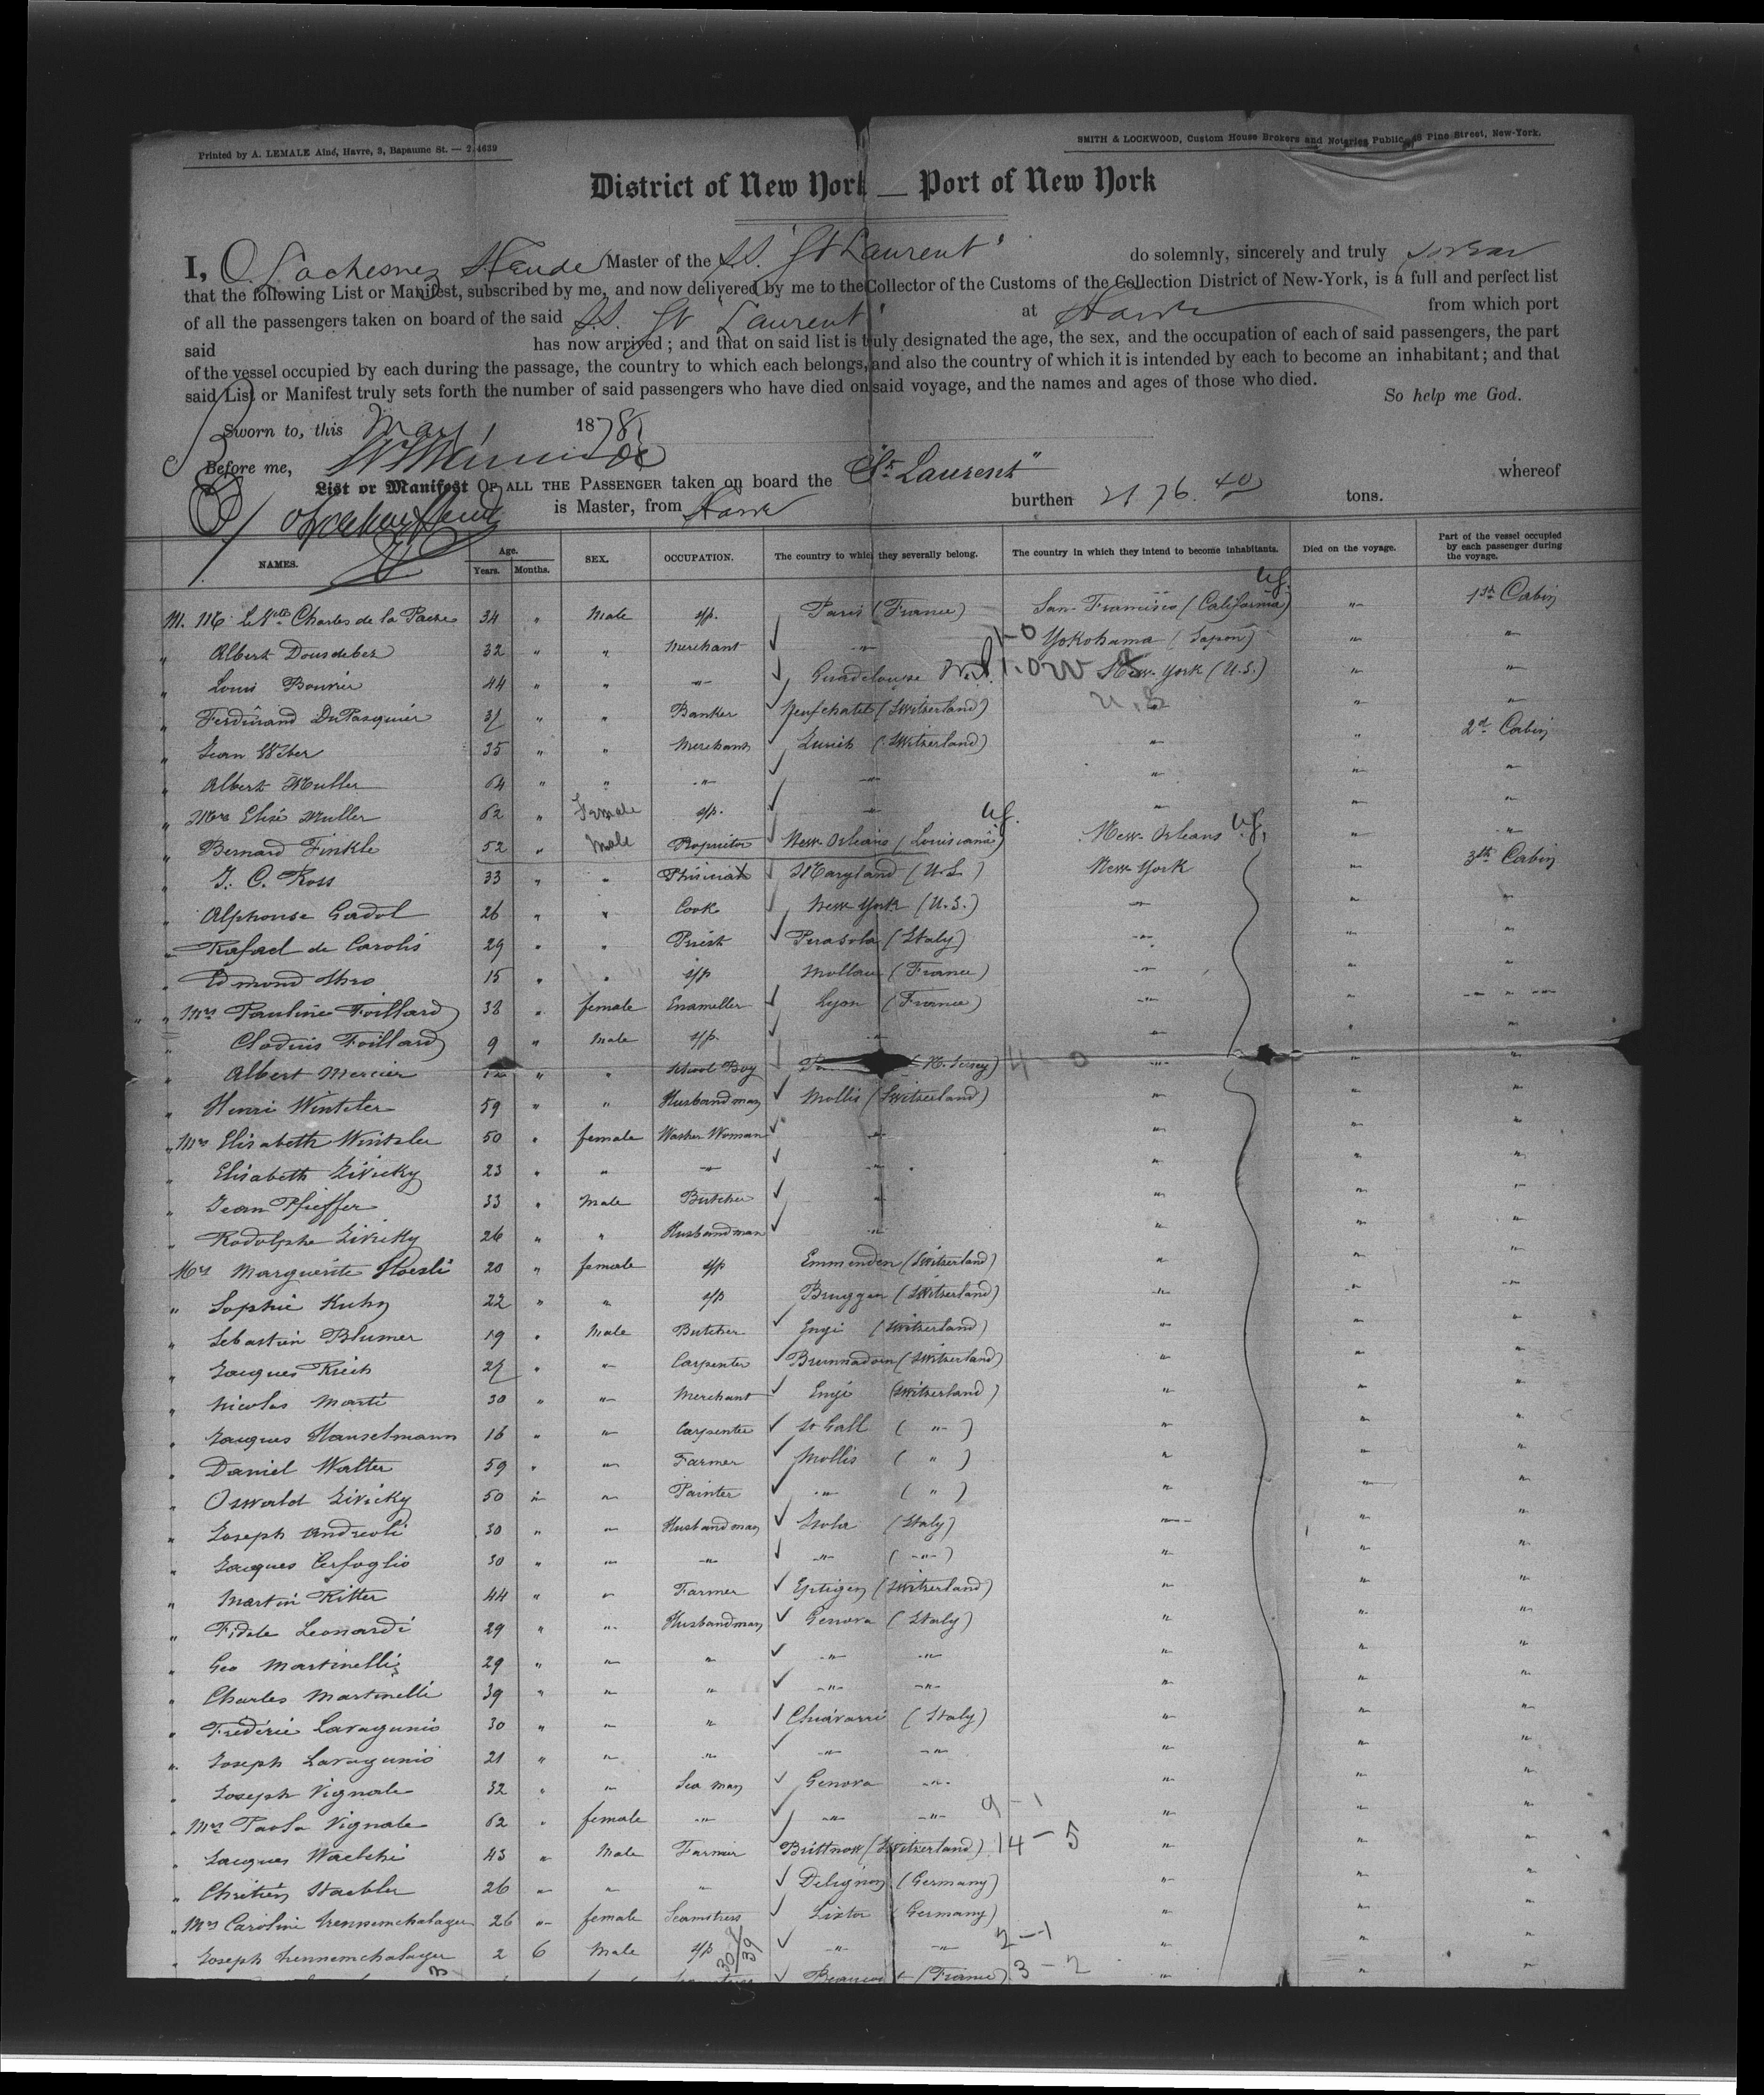 Printed by A. LEMALE Aîné, Havre, 3, Bapaume St. — 2.4639
SMITH & LOCKWOOD, Custom House Brokers and Notaries Public, 48 Pine Street, New-York.
District of New York — Port of New York
I, Master of the S.S. "St Laurent" do solemnly, sincerely and truly swear
that the following List or Manifest, subscribed by me, and now delivered by me to the Collector of the Customs of the Collection District of New-York, is a full and perfect list
of all the passengers taken on board of the said S.S. St Laurent at Havre from which port
said has now arrived; and that on said list is truly designated the age, the sex, and the occupation of each of said passengers, the part
of the vessel occupied by each during the passage, the country to which each belongs, and also the country of which it is intended by each to become an inhabitant; and that
said List or Manifest truly sets forth the number of said passengers who have died on said voyage, and the names and ages of those who died.
So help me God.
Sworn to, this May 1 1878
Before me,
List or Manifest OF ALL THE PASSENGER taken on board the "St Laurent" whereof
is Master, from Havre burthen 2176.40 tons.
NAMES. Age. Years. Months. SEX. OCCUPATION. The country to which they severally belong. The country in which they intend to become inhabitants. Died on the voyage. Part of the vessel occupied by each passenger during the voyage.
Charles de la 34 " Male s/p. Paris (France) San-Francisco (California) " 1st Cabin
" Albert Dousdebez 32 " " Merchant " Yokohama (Japon) " "
" Louis Bouvier 44 " " " Guadeloupe New-York (U.S.) " "
" Ferdinand DuPasquier 31 " " Banker Neufchatel (Switzerland) " " "
" Jean Weber 35 " " Merchant Zurich (Switzerland) " " 2d Cabin
" Albert Muller 64 " " " " " " "
" Mrs Elise Muller 62 " Female s/p. " " " "
" Bernard Finkle 52 " Male Proprietor New-Orleans (Louisiana) New-Orleans " "
" J. C. Ross 33 " " Phisician Maryland (U.S.) New-York " 3th Cabin
" Alphonse Gadol 26 " " Cook New York (U.S.) " " "
" Rafael de Carolis 29 " " Priest Perasola (Italy) " " "
" Edmond 15 " " s/p Mollau (France) " " "
" Mrs Pauline Foillard 38 " female Enameller Lyon (France) " " "
" Clodius Foillard 9 " Male s/p. " " " "
" Albert Mercier 12 " " School Boy (N. Jersey) " " "
" Henri Winteler 59 " " Husbandman Mollis (Switzerland) " " "
" Mrs Elisabeth Wintzler 50 " female Washer Woman " " " "
" Elisabeth Zivicky 23 " " " " " " "
" Jean Pfieffer 33 " Male Butcher " " " "
" Rodolphe Zivicky 26 " " Husbandman " " " "
Mrs Marguerite Hoesli 20 " female s/p Emmenden (Switzerland) " " "
" Sophie Kuhn 22 " " s/p Bruggen (Switzerland) " " "
" Sebastien Blumer 19 " Male Butcher Engi (Switzerland) " " "
" Jacques Rüch 27 " " Carpenter Brunnadorn (Switzerland) " " "
" Nicolas Marti 30 " " Merchant Engi (Switzerland) " " "
" Jacques Hanselmann 16 " " Carpenter St Gall ( " ) " " "
" Daniel Walter 59 " " Farmer Mollis ( " ) " " "
" Oswald Zivicky 50 " " Painter " ( " ) " " "
" Joseph Andreoli 30 " " Husbandman (Italy) " " "
" Jacques Cerfoglio 30 " " " " ( " ) " " "
" Martin Ritter 44 " " Farmer Eptigen (Switzerland) " " "
" Fidele Leonardi 29 " " Husbandman Genova (Italy) " " "
" Geo Martinelli 29 " " " " " " " "
" Charles Martinelli 39 " " " " " " " "
" Frédéric Lavagunio 30 " " " Chiavarri (Italy) " " "
" Joseph Lavagunio 21 " " " " " " " "
" Joseph Vignale 32 " " Sea man Genova " " " "
" Mrs Paola Vignale 62 " female " " " " " "
" Jacques Waelchi 43 " Male Farmer Brittnow (Switzerland) 14 - 5 " " "
" Chrétien Staebler 26 " " " Delignon (Germany) " " "
" Mrs Caroline 26 " female Seamstress Lixtor (Germany) " " "
" Joseph 2 6 Male s/p " " " " "
(France) 3 - 2 " " "